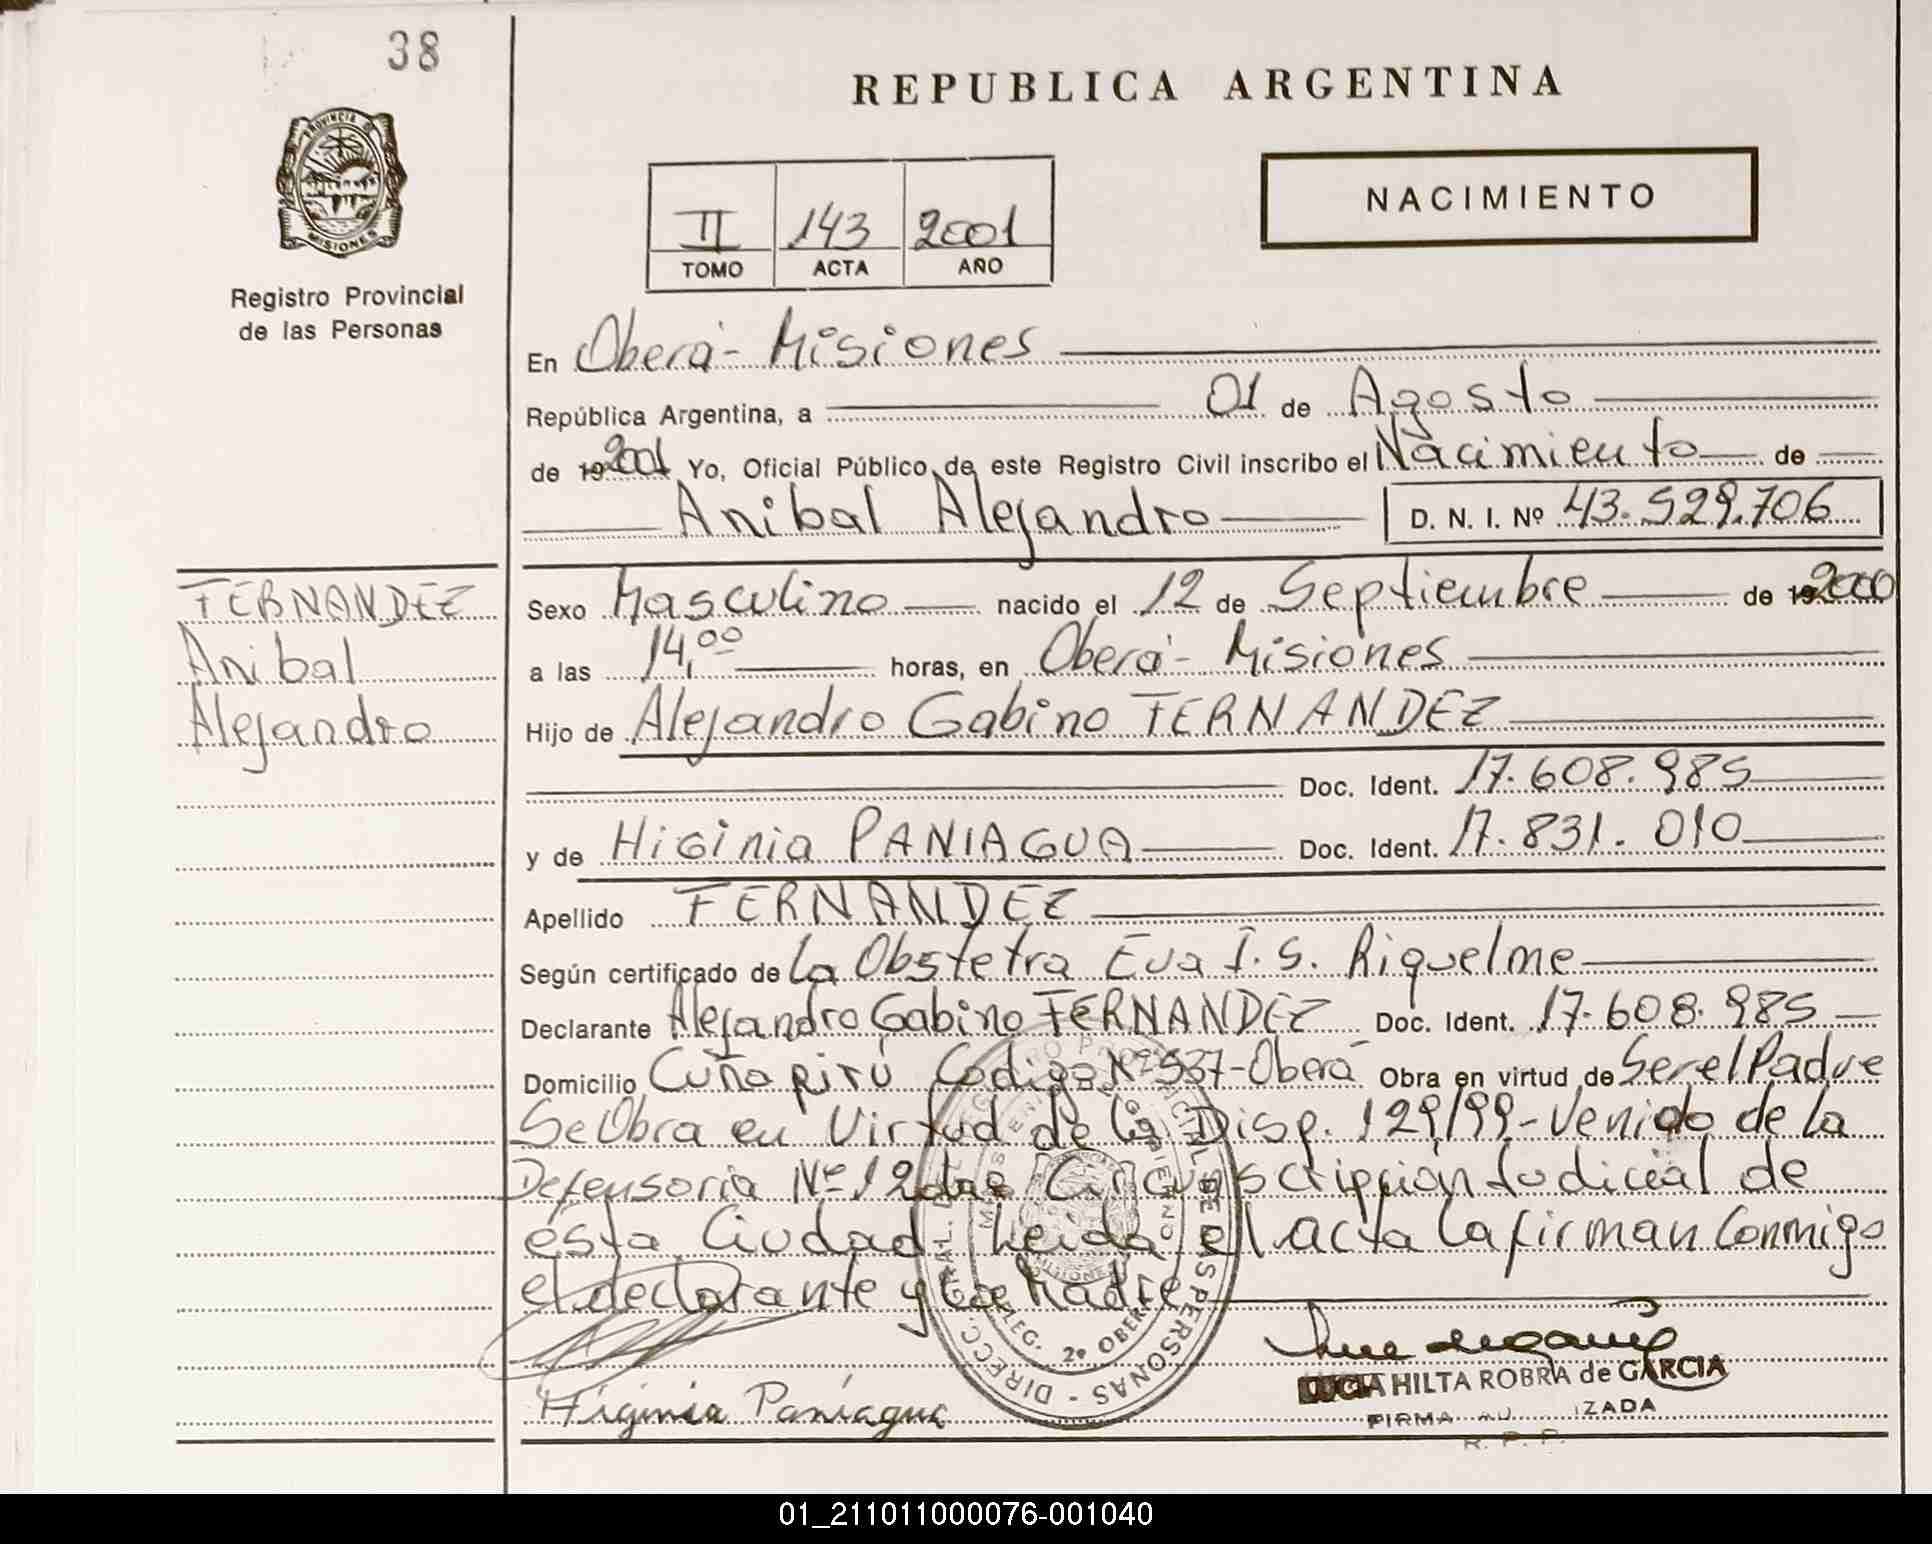 38
REPUBLICA ARGENTINA
PROVINCIA DE
MISIONES
Registro Provincial
de las Personas
II 143 2001
TOMO ACTA AÑO
NACIMIENTO
En Oberá - Misiones
República Argentina, a 01 de Agosto
de 19 2001 Yo, Oficial Público de este Registro Civil inscribo el Nacimiento de
Anibal Alejandro D. N. I. Nº 43.529.706
FERNANDEZ
Anibal
Alejandro
Sexo Masculino nacido el 12 de Septiembre de 19 2000
a las 14,00 horas, en Oberá - Misiones
Hijo de Alejandro Gabino FERNANDEZ
Doc. Ident. 17.608.985
y de Higinia PANIAGUA Doc. Ident. 17.831.010
Apellido FERNANDEZ
Según certificado de La Obstetra Eva I. S. Riquelme
Declarante Alejandro Gabino FERNANDEZ Doc. Ident. 17.608.985
Domicilio Cuña pirú Codigo Nº 537-Oberá Obra en virtud de Ser el Padre
Se Obra en Virtud de la Disp. 129/99 - Venido de la
Defensoria Nº 1 2da Circunscripción Judicial de
ésta Ciudad Leida el acta la firman Conmigo
el declarante y la Madre
Higinia Paniagua
DIRECC. GRAL. DEL REGISTRO PROVINCIAL DE LAS PERSONAS
DELEG. 2º OBERA
MISIONES
LUCIA HILTA ROBRA de GARCIA
FIRMA AU IZADA
R. P. P.
01_211011000076-001040